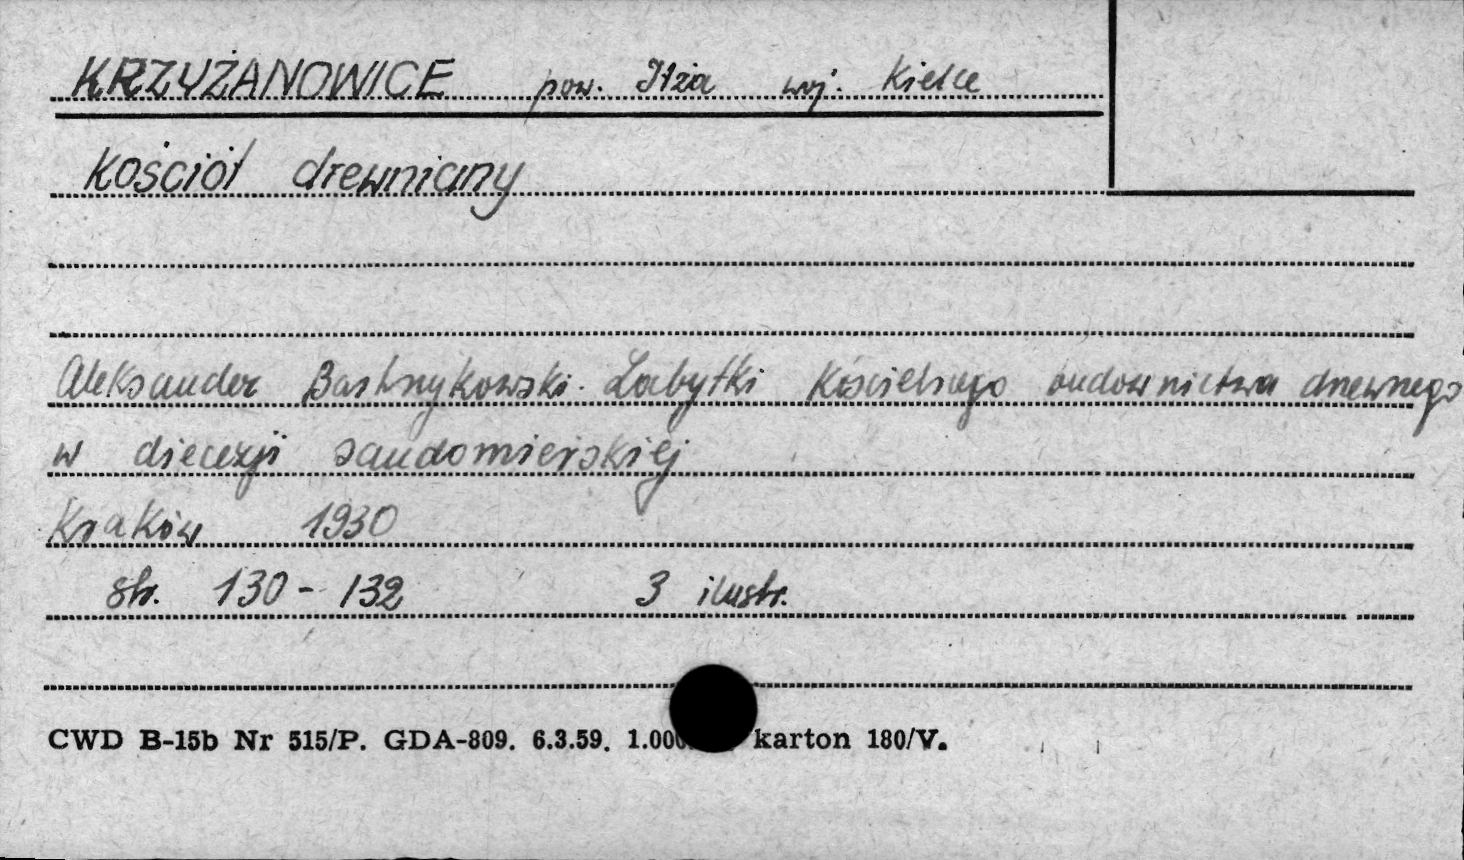 KRZYŻANOWICE pow. Iłża woj. Kielce
Kościół drewniany
Aleksander Bastrzykowski. Zabytki Kościelnego budownictwa drewnego
w diecezji sandomierskiej
Kraków 1930
str. 130 - 132 3 ilustr.
CWD B-15b Nr 515/P. GDA-809. 6.3.59. karton 180/V.